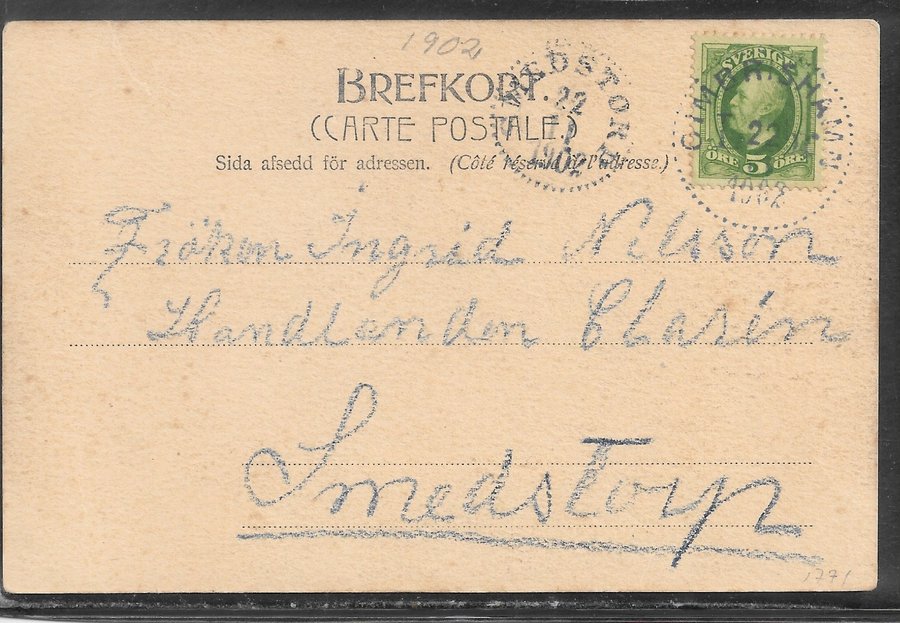 1902
BREFKORT.
(CARTE POSTALE)
Sida afsedd för adressen. (Côté réservé à l'adresse.)
SMEDSTORP
22
1902
SVERIGE
ÖRE 5 ÖRE
CIMBRISHAMN
22
1902
Fröken Ingrid Nilsson
Handlanden Clasén
Smedstorp
1771